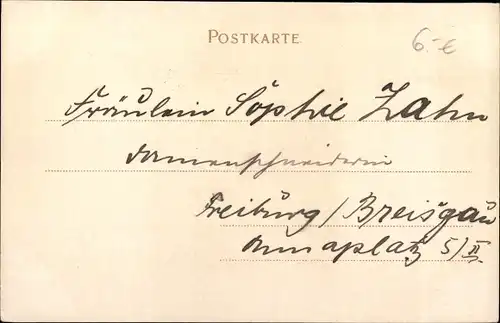 POSTKARTE
6.- €
Fräulein Sophie Zahn
Damenschneiderin
Freiburg / Breisgau
Annaplatz 5/II